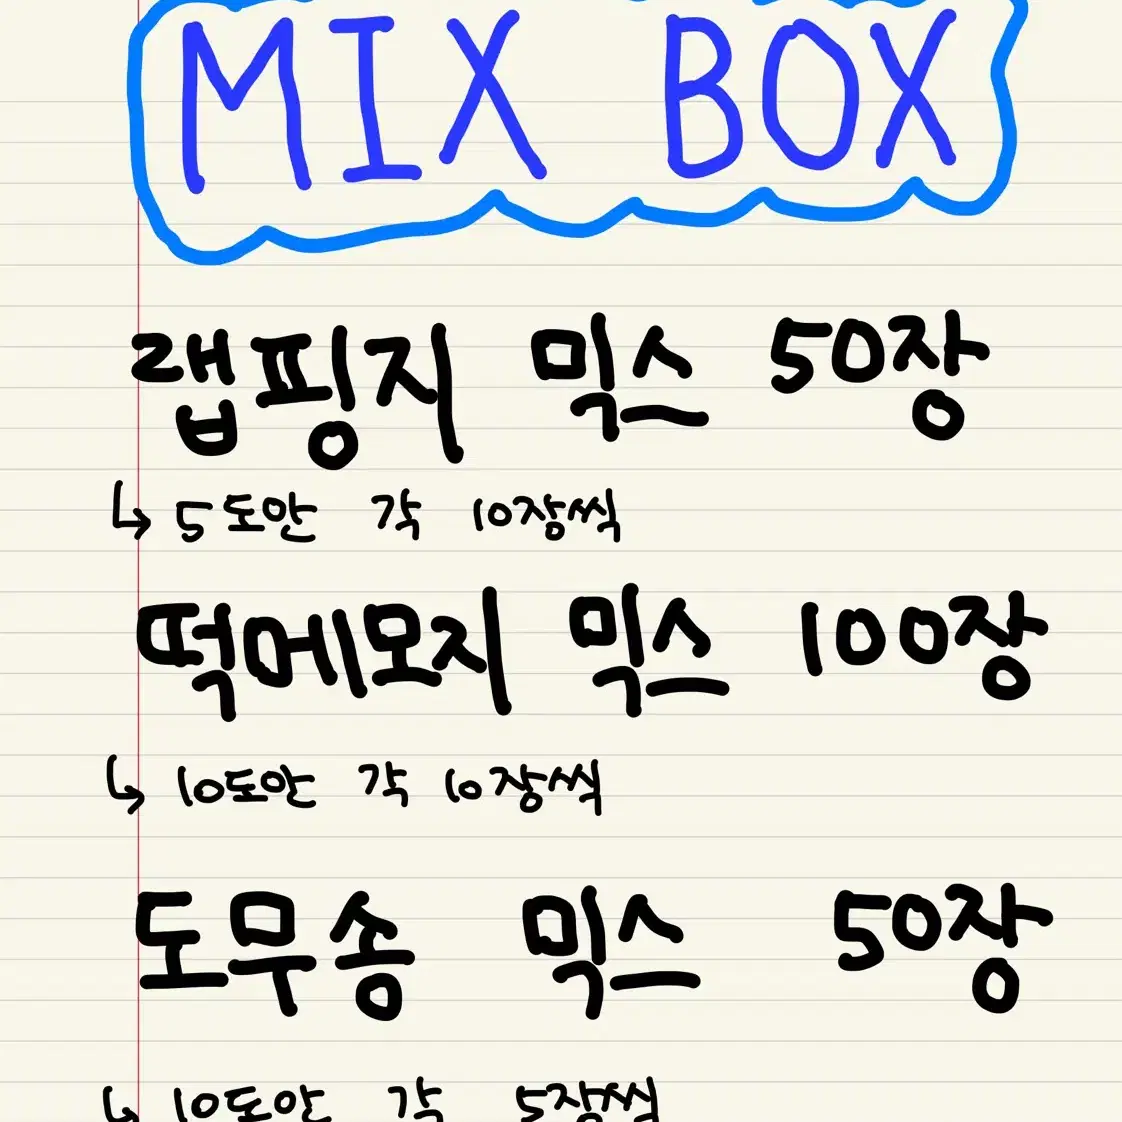 MIX BOX
랩핑지 믹스 50장
↳ 5도안 각 10장씩
떡메모지 믹스 100장
↳ 10도안 각 10장씩
도무송 믹스 50장
↳ 10도안 각 5장씩